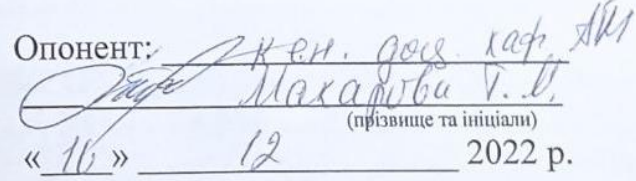 Опонент: к.е.н. доц. каф. АМ
Макарова Т. М.
(прізвище та ініціали)
« 16 » 12 2022 р.